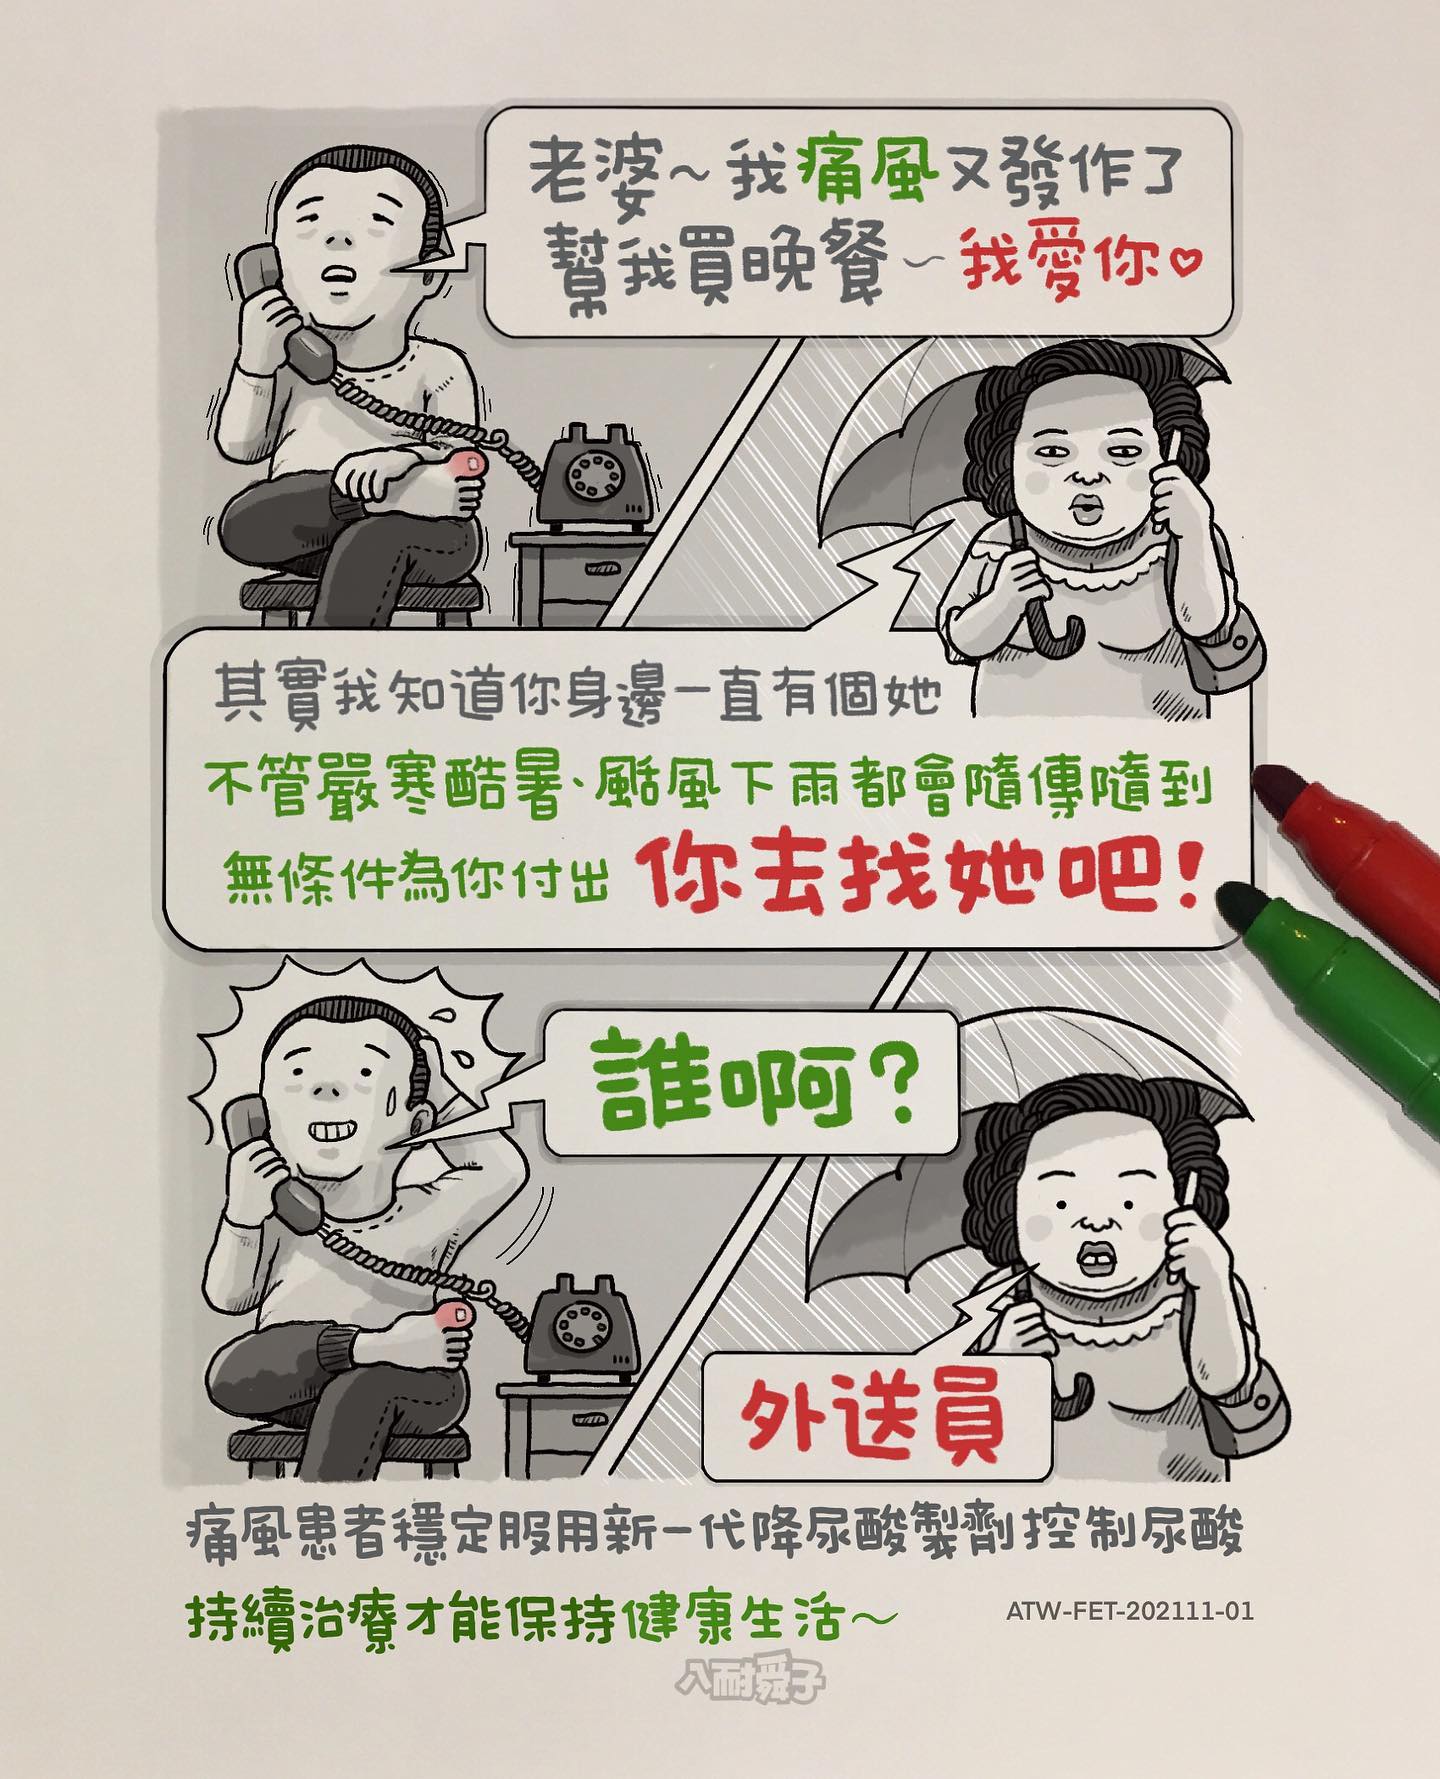 老婆~我痛風又發作了
幫我買晚餐~我愛你♡
其實我知道你身邊一直有個她
不管嚴寒酷暑、颳風下雨都會隨傳隨到
無條件為你付出 你去找她吧!
誰啊?
外送員
痛風患者穩定服用新一代降尿酸製劑控制尿酸
持續治療才能保持健康生活~
ATW-FET-202111-01
八耐舜子